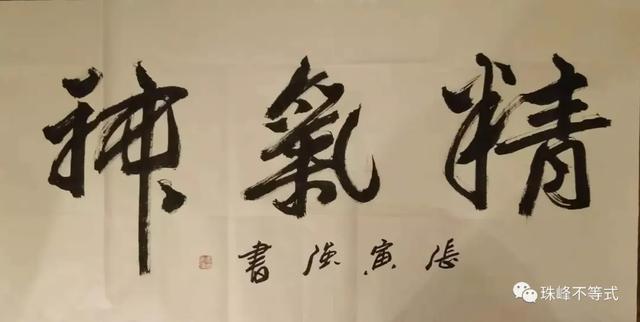 精氣神
張寅書
珠峰不等式